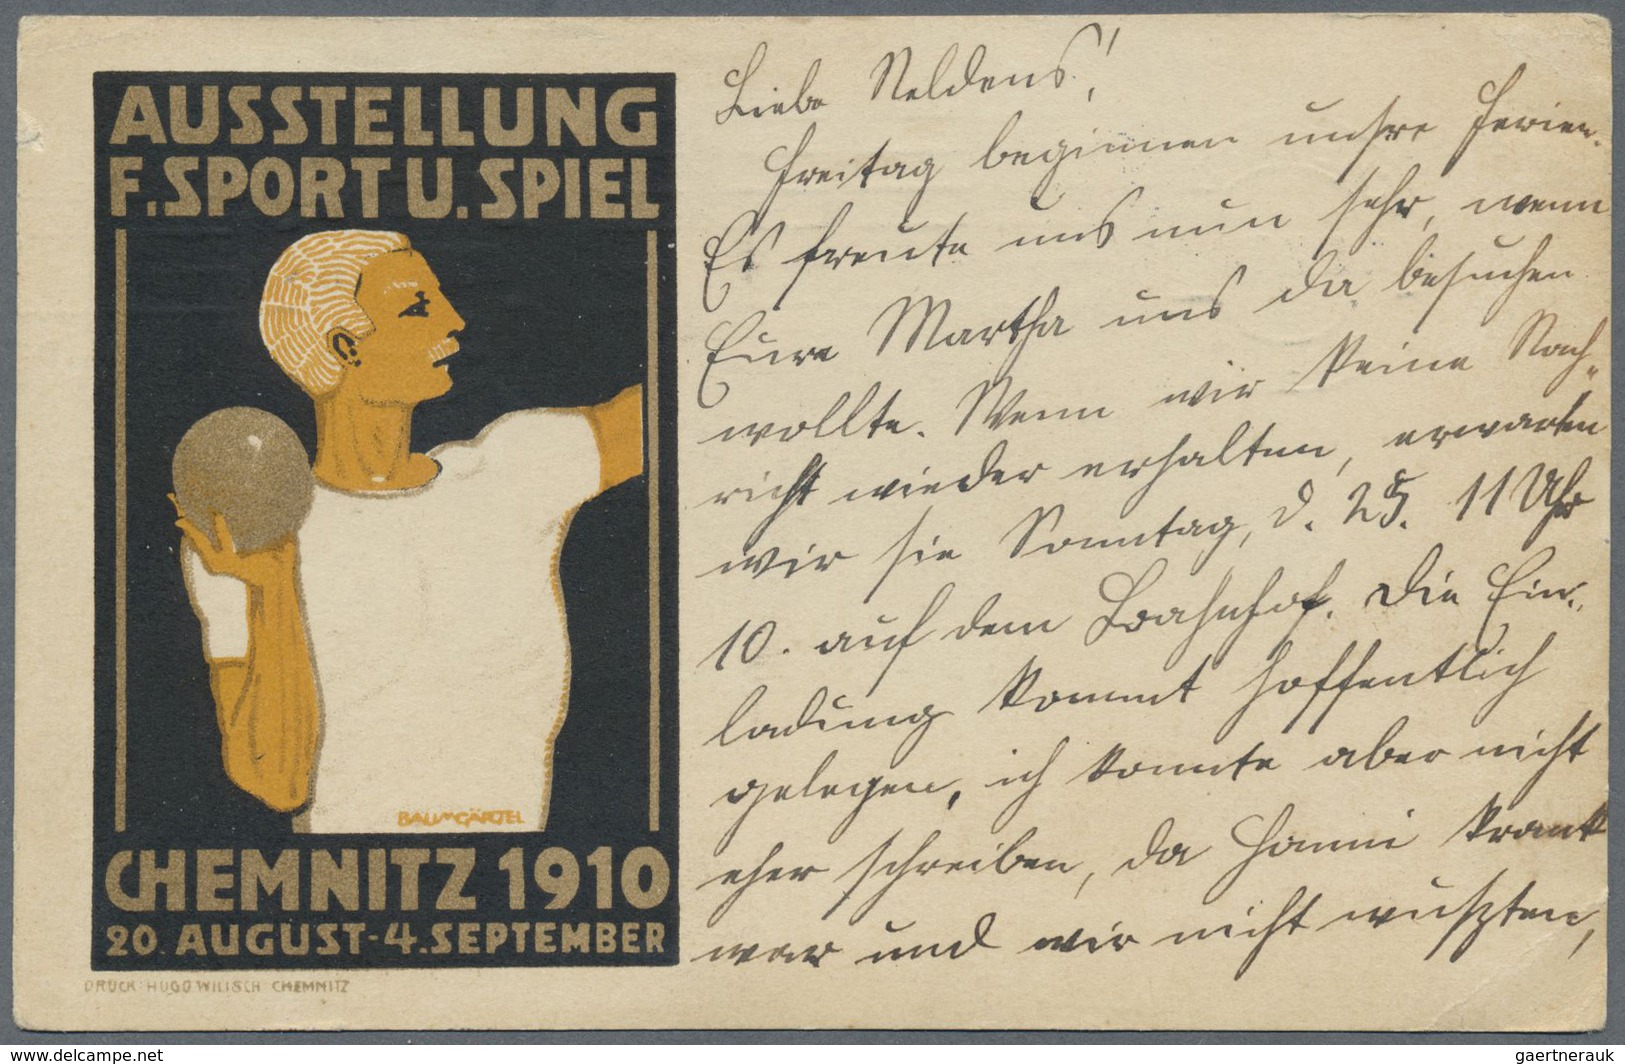 AUSSTELLUNG
F. SPORT U. SPIEL
BAUMGÄRTEL
CHEMNITZ 1910
20. AUGUST - 4. SEPTEMBER
DRUCK: HUGO WILISCH CHEMNITZ
Liebe Neldens!
Freitag beginnen unsre Ferien.
Es freute uns nun sehr, wenn
Eure Martha uns da besuchen
wollte. Wenn wir keine Nach-
richt wieder erhalten, erwarten
wir sie Sonntag, d. 25. 11 Uhr
10. auf dem Bahnhof. Die Ein-
ladung kommt hoffentlich
gelegen, ich konnte aber nicht
eher schreiben, da Hanni krank
war und wir nicht wußten,
www.delcampe.net
gaertnerauk